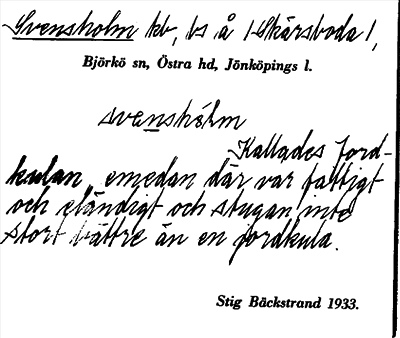 Svensholm kb, ls å /Skärsboda/,
Björkö sn, Östra hd, Jönköpings l.
svenshólm
Kallades Jord-
kulan, emedan där var fattigt
och eländigt och stugan inte
stort bättre än en jordkula.
Stig Bäckstrand 1933.